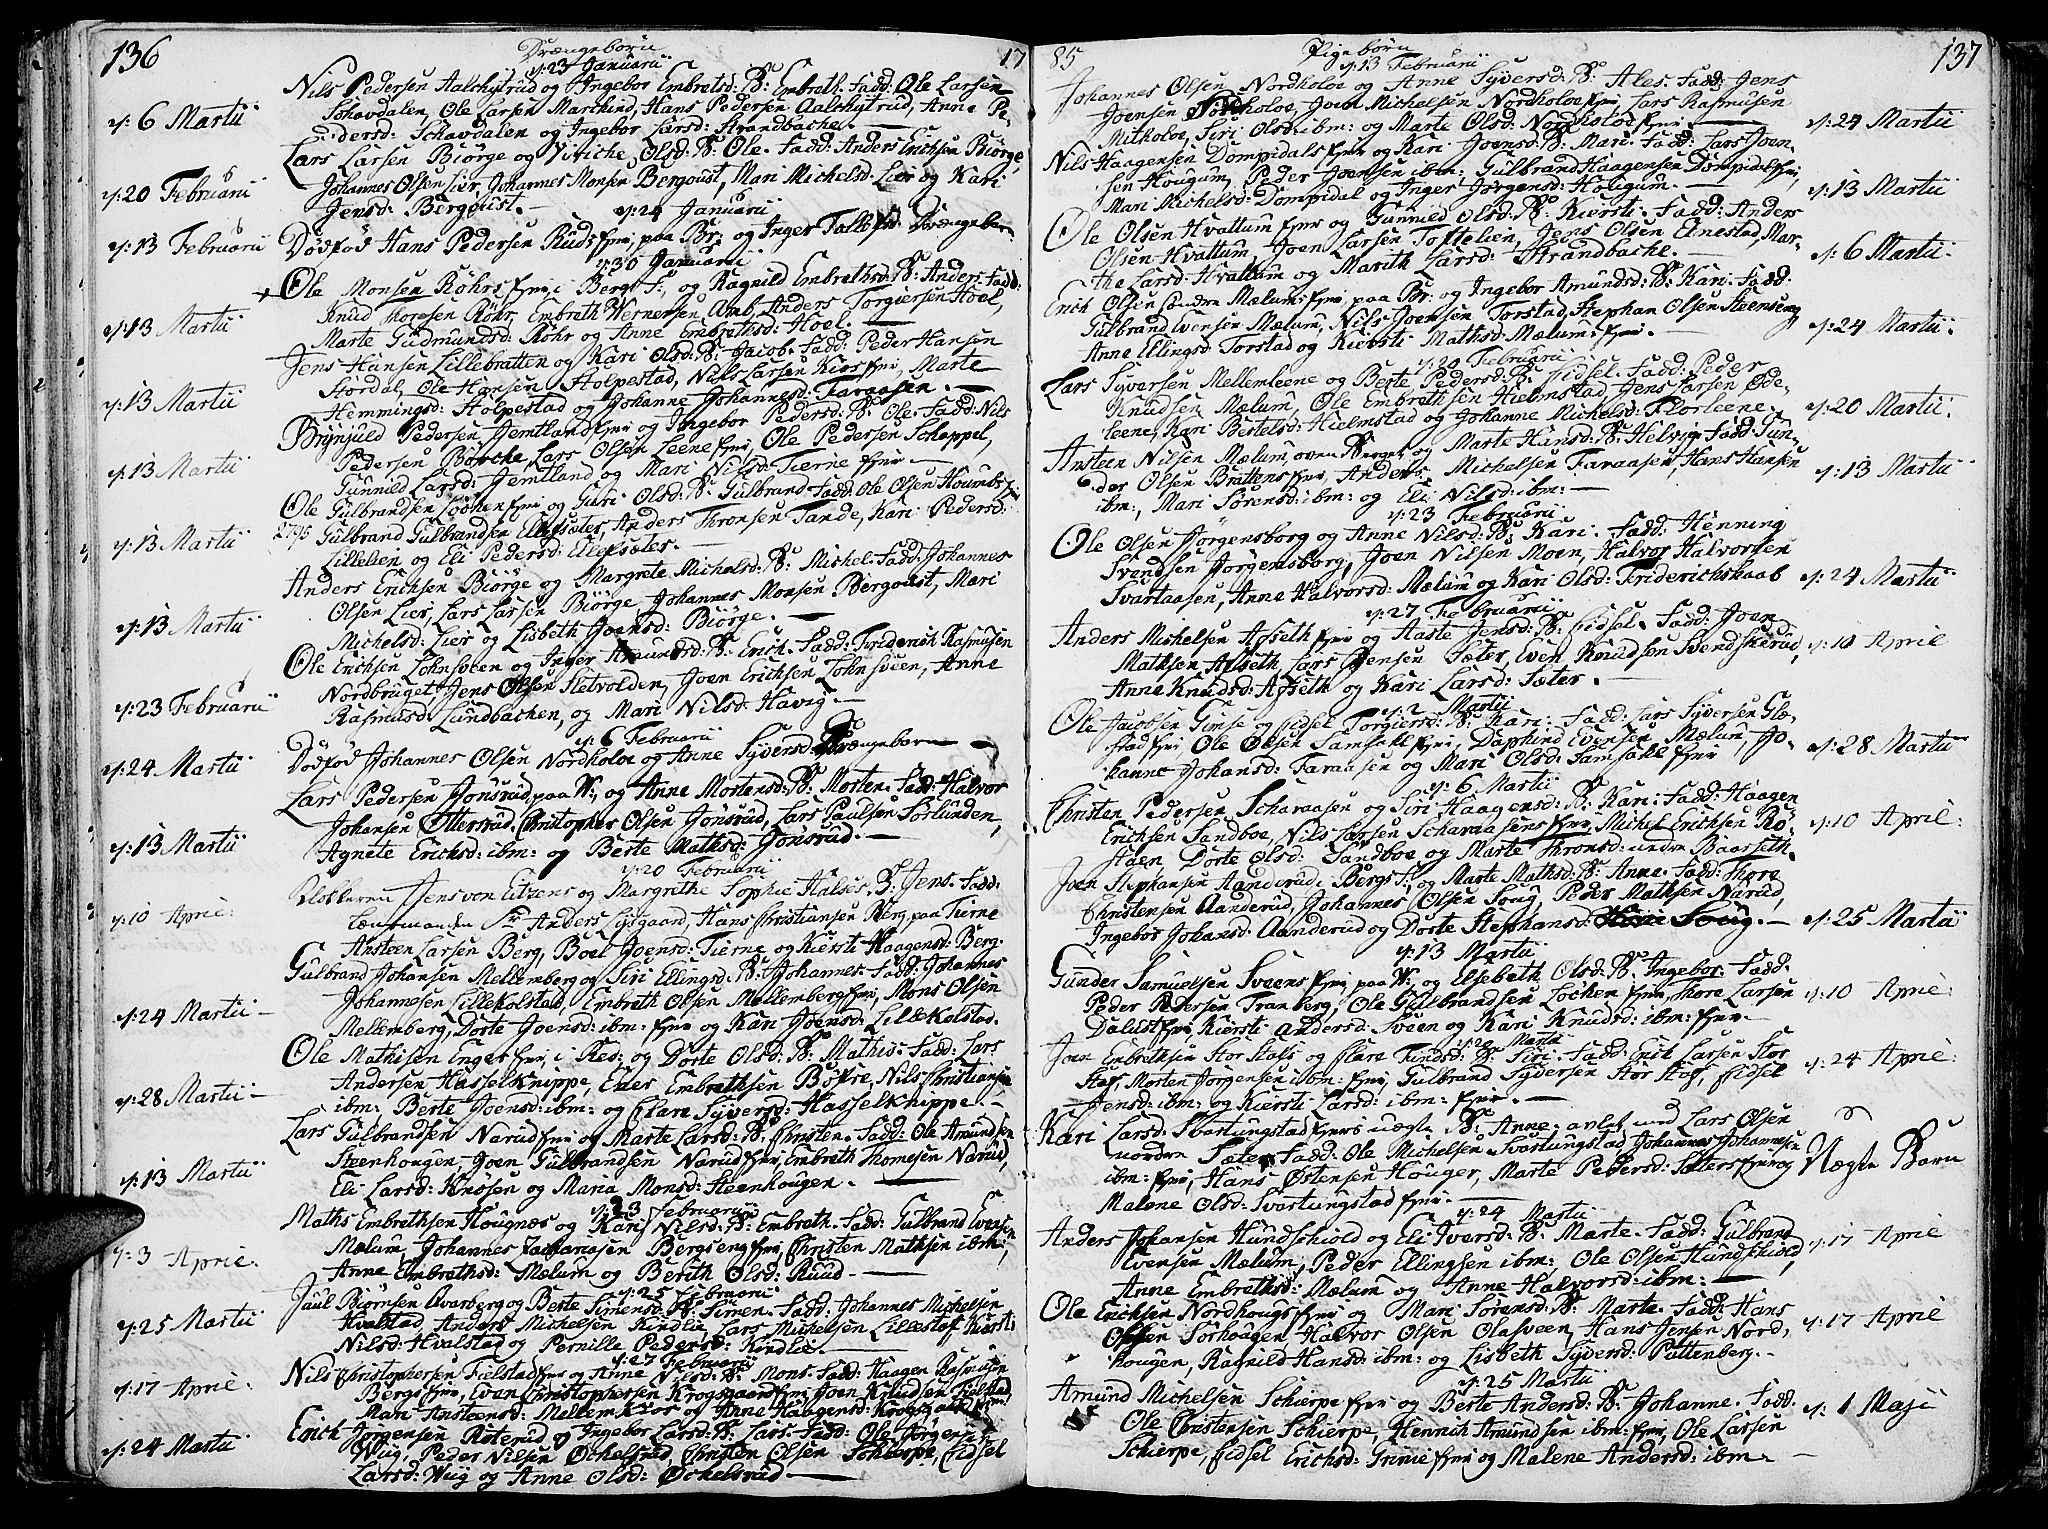 136
Drængebørn
17
d: 23 Januarii
Nils Pedersen Aalchytrud og Ingebor Embretsd: B: Embreth. Fadd: Ole Larsen
d: 6 Martii
Schavdalen, Ole Larsen Marchind, Hans Pedersen Aalchytrud, Anne Pe-
dersd: Schavdalen og Ingebor Larsd: Strandbache.
Lars Larsen Biörge og Olsd: B: Ole. Fadd: Anders Erichsen Biörge,
d: 20 Februarii
Johannes Olsen Lier, Johannes Monsen Bergqust, Mari Michelsd: Lier og Kari
Jensd: Bergqust.
d: 24 Januarii
d: 13 Februarii
Dödfød Hans Pedersen Ruds paa Br: og Inger Drængebarn
d: 30 Januarii
Ole Monsen Röhrs i Bergs F:, og Ragnild Embrethsd: B: Anders Fadd:
d: 13 Martii
Knud Thoresen Röhr, Embreth Wernersen Amb, Anders Torgiersen Hoel,
Marte Gudmundsd: Röhr og Anne Embrethsd: Hoel.
Jens Hansen Lillebratten og Kari Olsd: B: Jacob. Fadd: Peder Hansen
d: 13 Martii
Stordal, Ole Hansen Stolpestad, Nils Larsen Kios, Marte
Hemmingsd: Stolpestad og Johanne Johannesd: Faraasen.
Brynjuld Pedersen Jemtland og Ingebor Pedersd: B: Ole. Fadd: Nils
d: 13 Martii
Pedersen Börche, Lars Olsen Leene, Ole Pedersen Scheppel,
Gunnild Larsd: Jemtland og Mari Nilsd: Tierne
Ole Gulbrandsen Löchen og Guri Olsd: B: Gulbrand. Fadd: Ole Olsen
d: 13 Martii
Gulbrand Gulbrandsen Ellefsæter, Anders Thronsen Tande, Kari Pedersd:
Lillelien og Eli Pedersd: Ellefsæter.
Anders Erichsen Biörge og Margrete Michelsd: B: Michel. Fadd: Johannes
d: 13 Martii
Olsen Lier, Lars Larsen Biörge, Johannes Monsen Bergqust, Mari
Michelsd: Lier og Lisbeth Joensd: Biörge.
Ole Erichsen Lohnsveen og Inger Amundsd: B: Erich. Fadd: Friderich Rasmusen
d: 23 Februarii
Nordbruget, Jens Olsen Hetvolden, Joen Erichsen Lohnsveen, Anne
Rasmusd: Lundbachen, og Mari Nilsd: Havig.
d: 6 Februarii
d: 24 Martii
Dödfød Johannes Olsen Nordholoe og Anne Syversd: Drængebarn
Lars Pedersen Jönsrud paa V:, og Anne Mortensd: B: Morten. Fadd: Halvor
d: 13 Martii
Johansen Ottersrud, Christopher Olsen Jönsrud, Lars Paulsen Sörlunden,
Agnete Erichsd: ibm: og Berte Mathsd: Jönsrud.
d: 20 Februarii
d: 10 April:
Klokkeren Jens von Eitzens og Margrethe Sophie Halses B: Jens. Fadd:
Lænsmanden Sr Anders Lysgaard, Hans Christiansen Berg paa Tierne
Ansteen Larsen Berg, Boel Joensd: Tierne og Kiersti Haagensd: Berg.
Gulbrand Johansen Mellemberg og Siri Ellingsd: B: Johannes. Fadd: Johannes
d: 24 Martii
Johannesen Lillekolstad, Embreth Olsen Mellemberg, Mons Olsen
Mellemberg, Dorte Joensd: ibm: og Kari Joensd: Lillekolstad.
Ole Mathisen Enges i Red: og Dorte Olsd: B: Mathis. Fadd: Lars
d: 28 Martii
Andersen Hasselknippe, Embrethsen Böfre, Nils Christiansen
ibm: Berte Joensd: ibm: og Clare Syversd: Hasselknippe.
Lars Gulbrandsen Narud og Marte Larsd: B: Christen. Fadd: Ole Amundsen
d: 13 Martii
Steenhougen, Joen Gulbrandsen Narud, Embreth Thomesen Narud,
Eli Larsd: Knssen og Maria Monsd: Steenhougen.
d: 23 Februarii
Maths Embrethsen Hougnæs og Kari Nilsd: B: Embreth. Fadd: Gulbrand Evensen
d: 3 April:
Mælum, Johannes Zachariasen Bergseng, Christen Mathsen ibm:,
Anne Embrethsd: Mælum og Berith Olsd: Ruud.
d: 25 Februarii
Paul Biörnsen Avarberg og Berte Simensd: B: Simen. Fadd: Johannes Michelsen
d: 25 Martii
Kvalstad, Anders Michelsen Kindlie, Lars Michelsen Lillestaf, Kiersti
Nilsd: Hvalstad og Pernille Pedersd: Kindlie.
d: 27 Februarii
Nils Christophersen Fielstad og Anne Nilsd: B: Mons. Fadd: Haagen Rasmusen
d: 17 April:
Bergs, Even Christophersen Krogsgaard, Joen Knudsen Fielstad,
Mari Ansteensd: Mellemkios og Anne Haagensd: Krogsgaard
Erich Jörgensen Röterud og Ingebor Larsd: B: Lars. Fadd: Ole Jörgens:
d: 24 Martii
Wiig, Peder Nilsen Öchelsrud, Christen Olsen Schierpe, Eidsel
Larsd: Wiig og Anne Olsd: Öchelsrud.
85
Pigebørn
137
d: 13 Februarii
Johannes Olsen Nordholoe og Anne Syversd: B: Ales. Fadd: Jens
Joensen Nordholoe, Joen Michelsen Nordholoe, Lars Rasmusen
d: 24 Martii
Mitholoe, Siri Olsd: ibm: og Marte Olsd: Nordholoe
Nils Haagensen Dompidals og Kari Joensd: B: Mari. Fadd: Lars Joen-
sen Hougum, Peder Joensen ibm: Gulbrand Haagensen Dompidal,
d: 13 Martii
Mari Michelsd: Dompidal og Inger Jörgensd: Hougum.
Ole Olsen Hvattum og Gunnild Olsd: B: Kiersti. Fadd: Anders
Olsen Hvattum, Joen Larsen Toftelien, Jens Olsen Einestad, Mar-
d: 6 Martii
the Larsd: Hvattum og Marith Larsd: Strandbache.
Erich Olsen söndre Mælums paa Br: og Ingebor Amundsd: B: Kari. Fadd:
Gulbrand Evensen Mælum, Nils Joensen Torstad, Stephan Olsen Steenseng
d: 24 Martii
Anne Ellingsd: Torstad og Kiersti Mathsd: Mælum.
d: 20 Februarii
Lars Syversen Mellemleene og Berte Pedersd: B: Eidsel. Fadd: Peder
Knudsen Mælum, Ole Embrethsen Hielmstad, Jens Larsen Öde-
d: 20 Martii
leene, Kari Bertelsd: Hielmstad og Johanne Michelsd: Florleene.
Ansteen Nilsen Mælum, oven Berget, og Marte Hansd: B: Helvig. Fadd: Gun-
der Olsen Brattens, Anders Michelsen Faraasen, Hans Hansen
d: 13 Martii
ibm:, Mari Sörensd: ibm: og Eli Nilsd: ibm:
d: 23 Februarii
Ole Olsen Jörgensborg og Anne Nilsd: B: Kari. Fadd: Henning
Svendsen Jörgensborg, Joen Nilsen Moen, Halvor Halvorsen
d: 24 Martii
Svartaasen, Anne Halvorsd: Mælum og Kari Olsd: Friderichskaab
d: 27 Februarii
Anders Michelsen Apseth og Aaste Jensd: B: Eidsel. Fadd: Joen
d: 10 April
Mathsen Apseth, Lars Jensen Sæter, Even Knudsen Svendskerud,
Anne Knudsd: Apseth og Kari Larsd: Sæter.
d: 2 Martii
Ole Jacobsen Gimse og Eidsel Torgiersd: B: Kari. Fadd: Lars Syversen Glæ-
stad, Ole Olsen Samsahl, Daphind Evensen Mælum, Jo-
d: 28 Martii
hanne Johansd: Faraasen og Mari Olsd: Samsahl
d: 6 Martii
Christen Pedersen Scharaasen og Siri Haagensd: B: Kari. Fadd: Haagen
Erichsen Sandboe, Nils Larsen Scharaasens, Michel Erichsen Rö-
d: 10 April:
staen Dorte Olsd: Sandboe og Marte Thronsd: under Baarseth.
Joen Stephansen Aanderud i Bergs F:, og Marte Mathsd: B: Anne. Fadd: Thore
Christensen Aanderud, Johannes Olsen Soug, Peder Mathsen Narud,
d: 25 Martii
Ingebor Johansd: Aanderud og Dorte Stephansd: Soug.
d: 13 Martii
Gunder Samuelsen Sveens paa V: og Elsebeth Olsd: B: Ingebor. Fadd:
Peder Pedersen Tranberg, Ole Gulbrandsen Löchen, Thore Larsen
d: 10 April:
Dalest, Kiersti Andersd: Sveen og Kari Knudsd: ibm:
d: 20 Martii
Joen Embrethsen Stor Stafs og Clare Findsd: B: Siri. Fadd: Erich Larsen Stor
Staf, Morten Jörgensen ibm:, Gulbrand Syversen Stor Staf, Eidsel
d: 24 April:
Jensd: ibm: og Kiersti Larsd: ibm:
Kari Larsd: Svartungstad uægte B: Anne. avlet med Lars Olsen
nordre Sæter. Fadd: Ole Michelsen Svartungstad, Johannes Johannesen
Uægte Barn
ibm:, Hans Östensen Houger, Marte Pedersd: Sæters og
Malene Olsd: Svartungstad
d: 24 Martii
Anders Johansen Hundschiold og Eli Iversd: B: Marte. Fadd: Gulbrand
Evensen Mælum, Peder Ellingsen ibm:, Ole Olsen Hundschiold,
d: 17 April
Anne Embrethsd: Mælum og Anne Halvorsd: ibm:
Ole Erichsen Nordhougs og Mari Sörensd: B: Marte. Fadd: Hans
Olsen Sörhougen, Halvor Olsen Olasveen, Hans Jensen Nord,
d: 17 April
hougen, Ragnild Hansd: ibm: og Lisbeth Syversd: Puttenberg.
d: 25 Martii
Amund Michelsen Schierpe og Berte Andersd: B: Johanne. Fadd:
Ole Christensen Schierpe, Henrich Amundsen ibm:, Ole Larsen
d: 1 Maji
Schierpe, Eidsel Erichsd: Grinie og Malene Andersd: ibm: